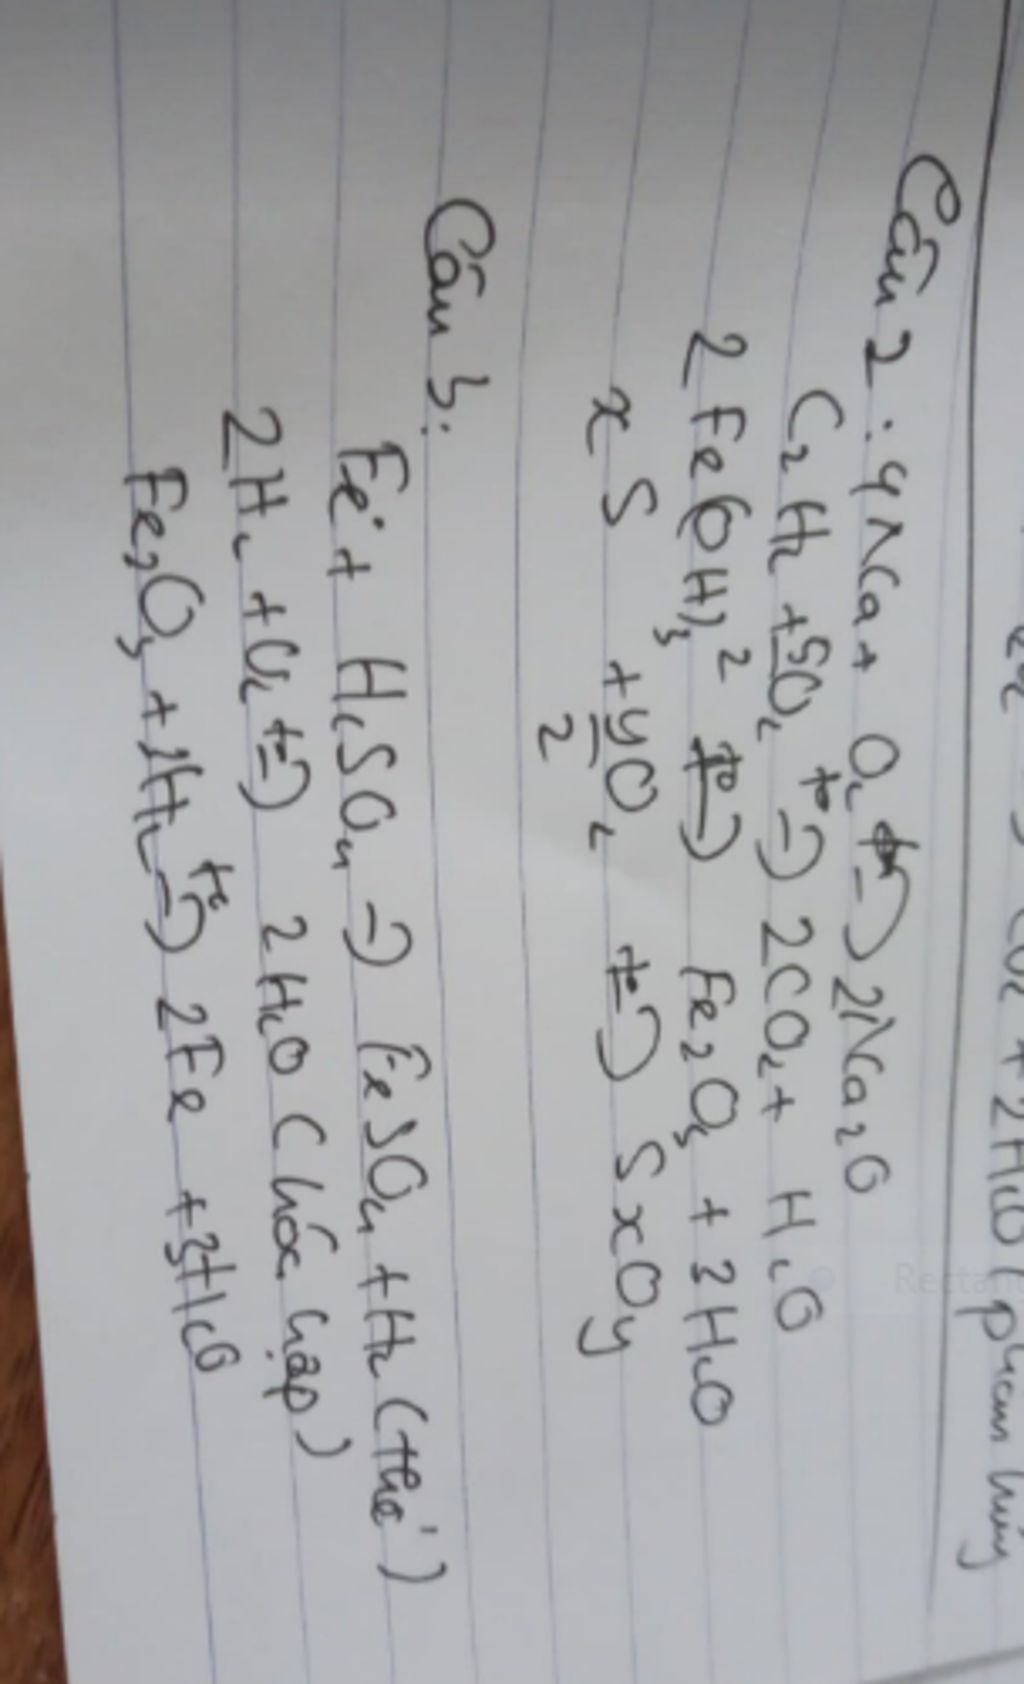 2HcO (phân hủy
Câu 2: 4Na + O2 t° → 2Na2O
C2H2 + 5/2 O2 t° → 2CO2 + H2O
2 Fe(OH)3 t° → Fe2O3 + 3H2O
x S + y/2 O2 t° → SxOy
Câu 3:
Fe + H2SO4 → FeSO4 + H2 (thế)
2H2 + O2 t° → 2H2O (hóa hợp)
Fe2O3 + 3H2 t° → 2Fe + 3H2O